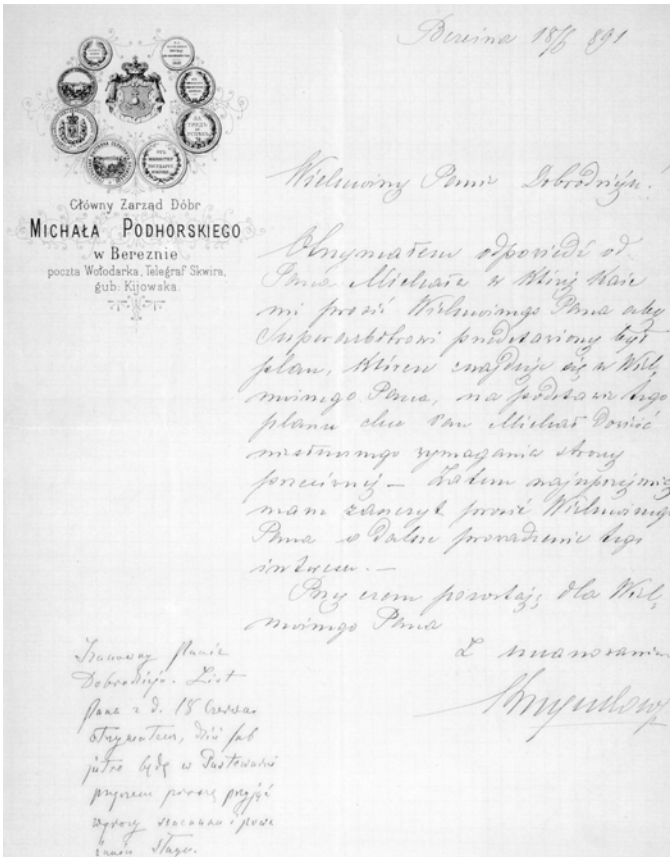 Berezna 18/6 891
Główny Zarząd Dóbr
MICHAŁA PODHORSKIEGO
w Bereznie
poczta Wołodarka, Telegraf Skwira,
gub: Kijowska.
Wielmożny Panie Dobrodzieju!
Otrzymałem odpowiedź od
Pana Michała w której każe
mi prosić Wielmożnego Pana aby
Superarbitrowi przedstawiony był
plan, któren znajduje się u Wiel,
możnego Pana, na podstawie tego
planu chce Pan Michał dowieść
niesłusznego wymagania strony
przeciwnej – Zatem najuprzejmiej
mam zaszczyt prosić Wielmożnego
Pana o dalsze prowadzenie tego
interesu. –
Przy czem pozostaję dla Wiel,
możnego Pana
Z uszanowaniem
Szanowny Panie
Dobrodzieju. List
Pana z d. 18 Czerwca
otrzymałem, dziś lub
jutro będę w
przyczem proszę przyjąć
wyrazy szacunku i powa
żania sługa.